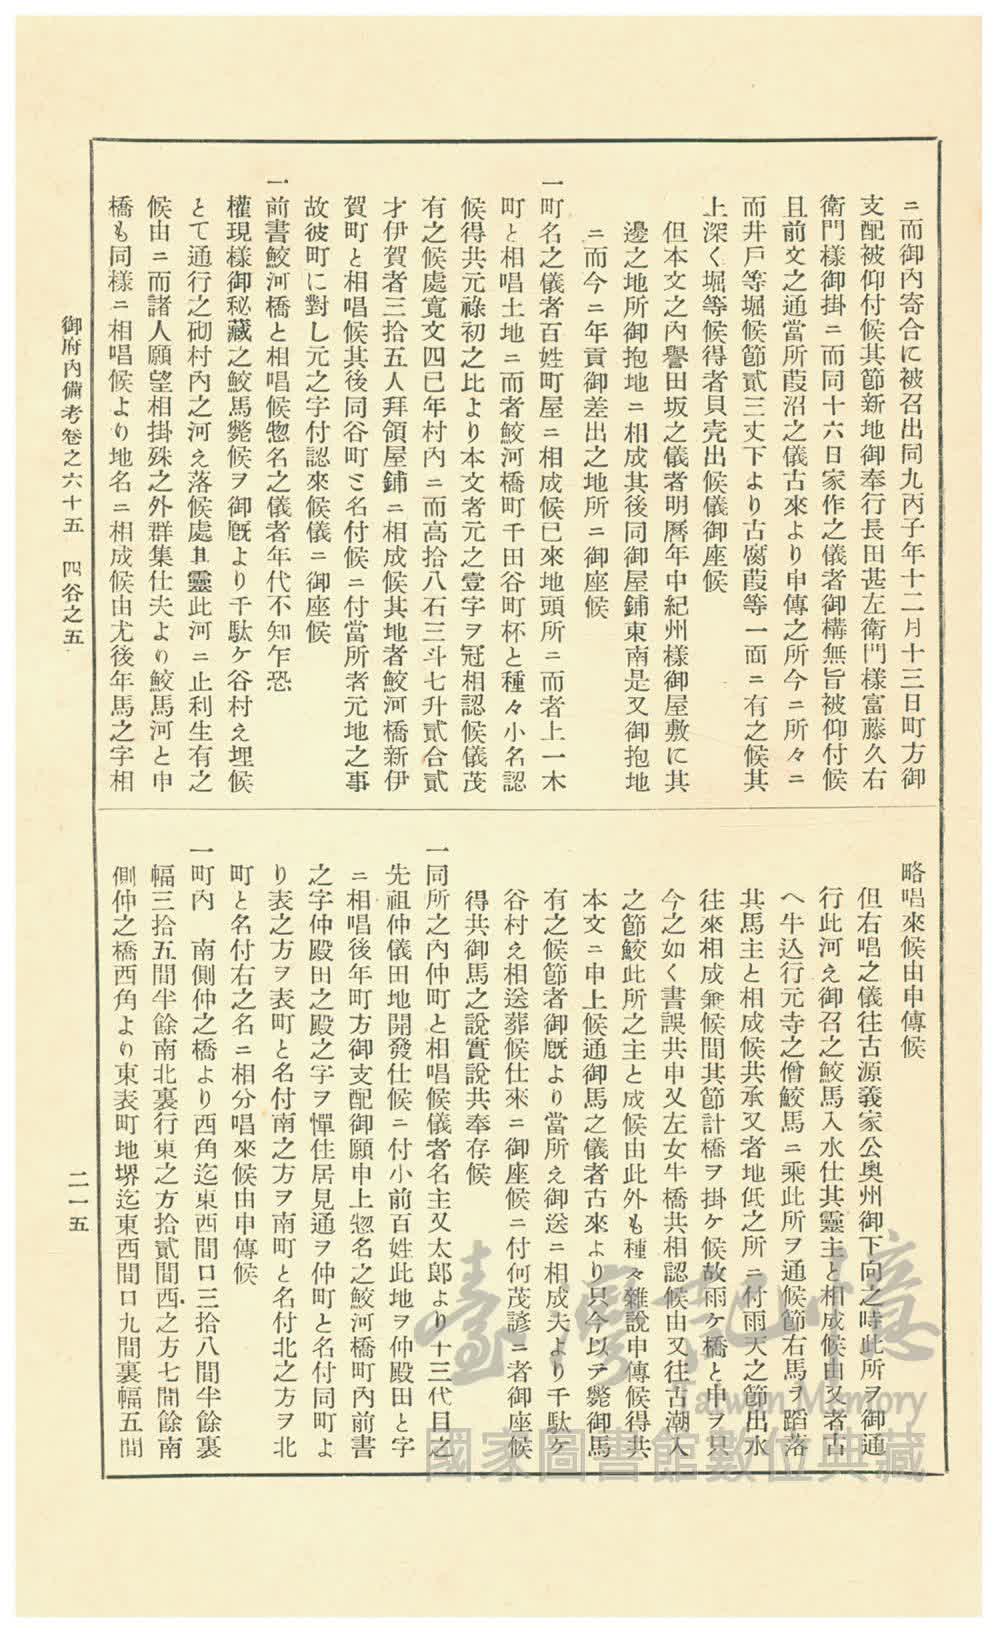 ニ而御內寄合に被召出同九丙子年十二月十三日町方御
支配被仰付候其節新地御奉行長田甚左衛門樣富藤久右
衛門樣御掛ニ而同十六日家作之儀者御構無旨被仰付候
且前文之通當所葭沼之儀古來より申傳之所今ニ所々ニ
而井戶等堀候節貳三丈下より古腐葭等一面ニ有之候其
上深く堀等候得者貝壳出候儀御座候
但本文之內譽田坂之儀者明曆年中紀州樣御屋敷に其
邊之地所御抱地ニ相成其後同御屋鋪東南是又御抱地
ニ而今ニ年貢御差出之地所ニ御座候
一町名之儀者百姓町屋ニ相成候已來地頭所ニ而者上一木
町と相唱土地ニ而者鮫河橋町千田谷町杯と種々小名認
候得共元祿初之比より本文者元之壹字ヲ冠相認候儀茂
有之候處寬文四巳年村內ニ而高拾八石三斗七升貳合貳
才伊賀者三拾五人拜領屋鋪ニ相成候其地者鮫河橋新伊
賀町と相唱候其後同谷町ミ名付候ニ付當所者元地之事
故彼町に對し元之字付認來候儀ニ御座候
一前書鮫河橋と相唱候惣名之儀者年代不知乍恐
權現樣御秘藏之鮫馬斃候ヲ御厩より千駄ケ谷村え埋候
とて通行之砌村內之河え落候處其靈此河ニ止利生有之
候由ニ而諸人願望相掛殊之外群集仕夫より鮫馬河と申
橋も同樣ニ相唱候より地名ニ相成候由尤後年馬之字相
略唱來候由申傳候
但右唱之儀往古源義家公奧州御下向之時此所ヲ御通
行此河え御召之鮫馬入水仕其靈主と相成候由又者古
へ牛込行元寺之僧鮫馬ニ乘此所ヲ通候節右馬ヲ蹈落
其馬主と相成候共承又者地低之所ニ付雨天之節出水
往來相成兼候間其節計橋ヲ掛ケ候故雨ケ橋と申ヲ只
今之如く書誤共申又左女牛橋共相認候由又往古潮入
之節鮫此所之主と成候由此外も種々雜說申傳候得共
本文ニ申上候通御馬之儀者古來より只今以テ斃御馬
有之候節者御厩より當所え御送ニ相成夫より千駄ケ
谷村え相送葬候仕來ニ御座候ニ付何茂諺ニ者御座候
得共御馬之說實說共奉存候
一同所之內仲町と相唱候儀者名主又太郎より十三代目之
先祖仲儀田地開發仕候ニ付小前百姓此地ヲ仲殿田と字
ニ相唱後年町方御支配御願申上惣名之鮫河橋町內前書
之字仲殿田之殿之字ヲ憚住居見通ヲ仲町と名付同町よ
り表之方ヲ表町と名付南之方ヲ南町と名付北之方ヲ北
町と名付右之名ニ相分唱來候由申傳候
一町內　南側仲之橋より西角迄東西間口三拾八間半餘裏
幅三拾五間半餘南北裏行東之方拾貳間西之方七間餘南
側仲之橋西角より東表町地堺迄東西間口九間裏幅五間
御府內備考卷之六十五　四谷之五
二一五
臺灣記憶
Taiwan Memory
國家圖書館數位典藏